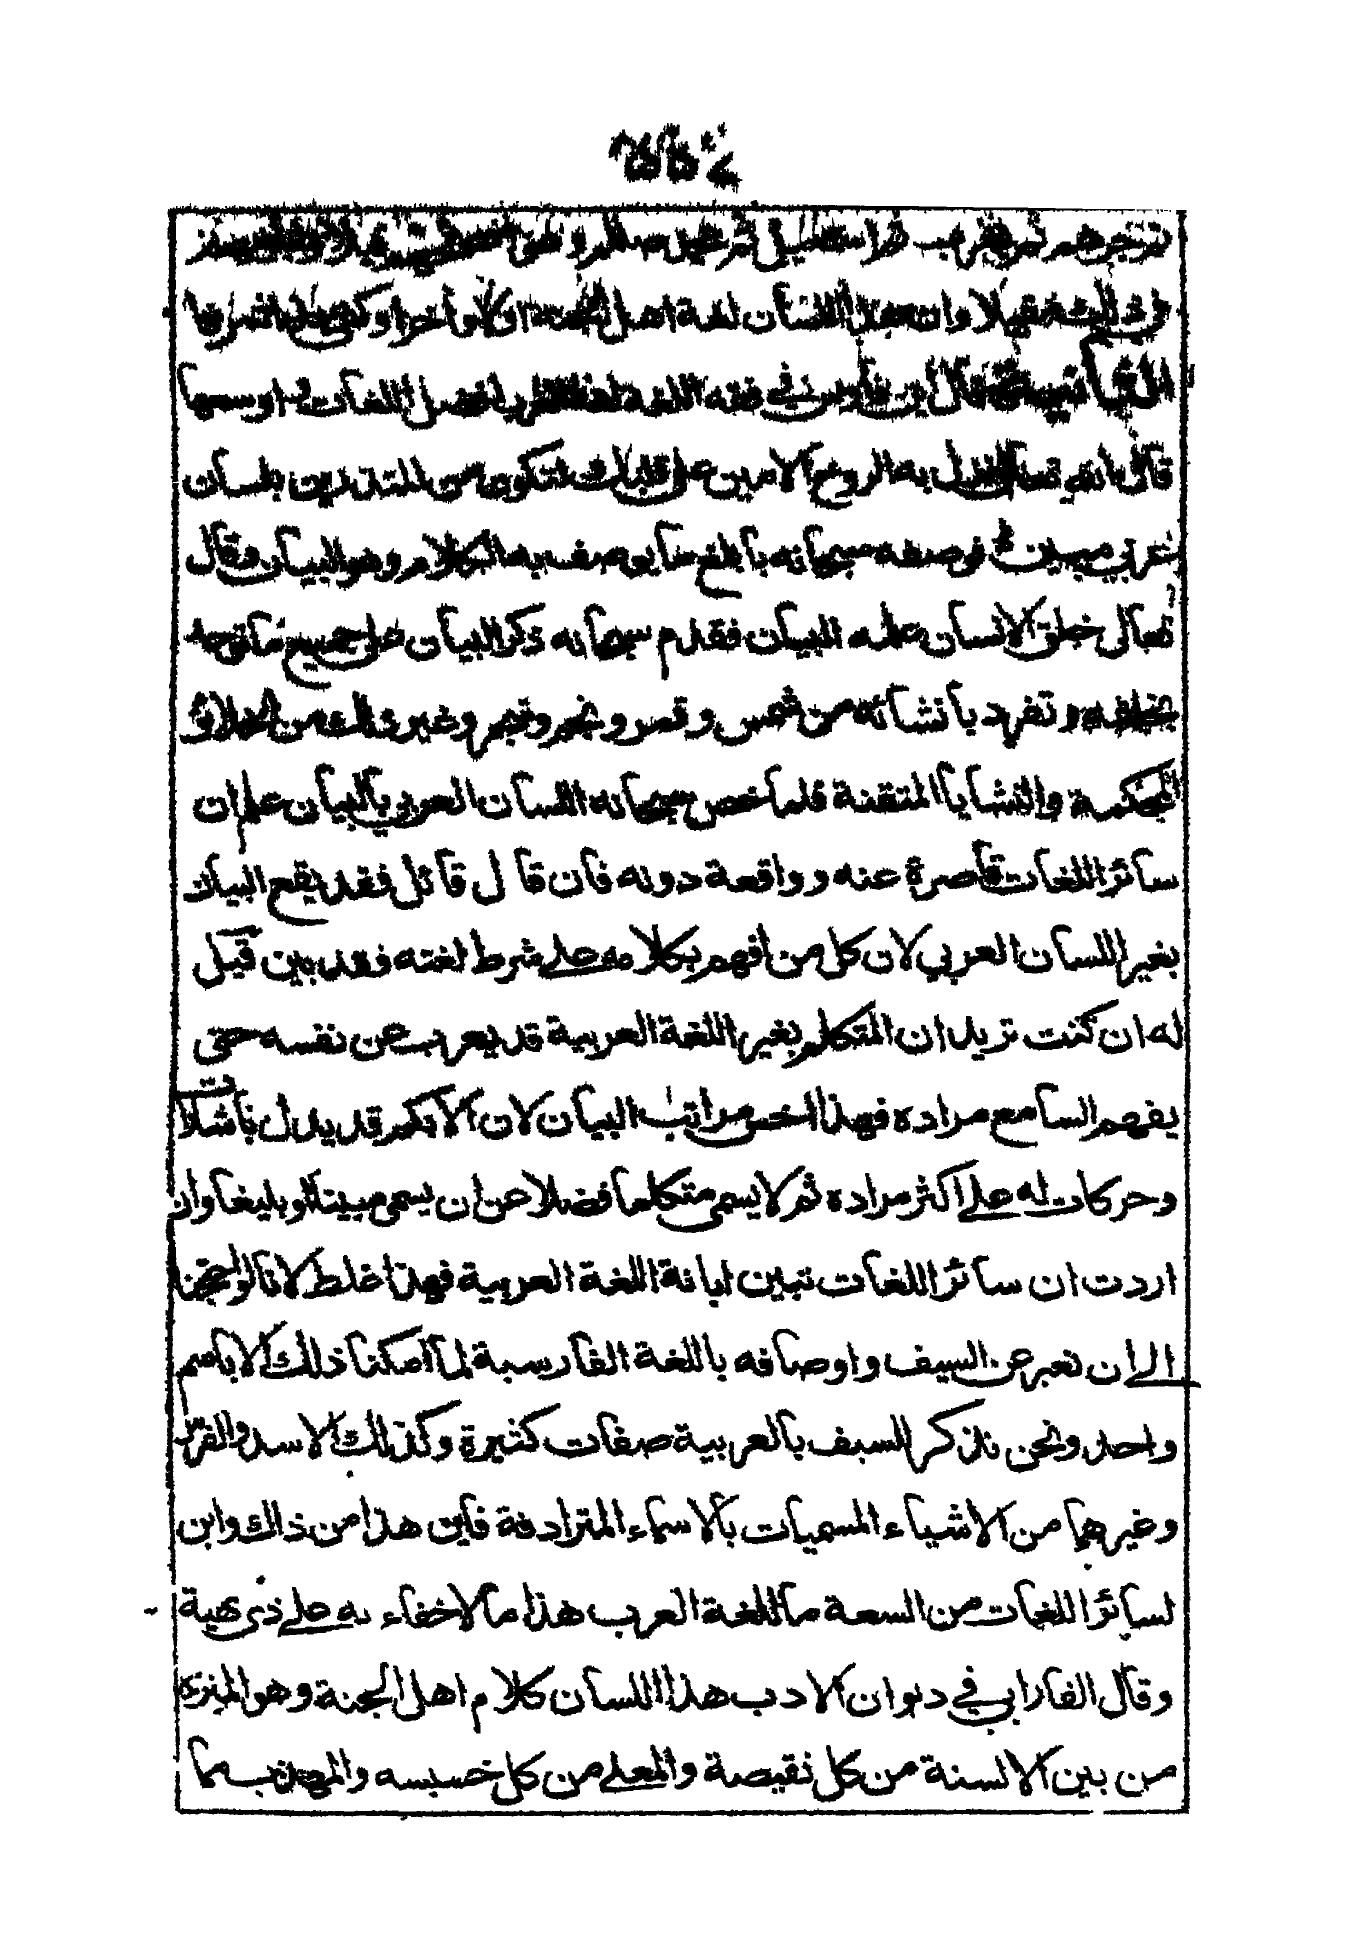 وان اللسان لغة اهل الجنة اولا وآخرا
قال ابن فارس في فقه اللغة لغة العرب افضل اللغات واوسعها
قال الله تعالى نزل به الروح الامين على قلبك لتكون من المنذرين بلسان
عربي مبين فوصفه سبحانه بابلغ ما يوصف به الكلام وهو البيان وقال
تعالى خلق الانسان علمه البيان فقدم سبحانه ذكر البيان على جميع ما توحد
بخلقه وتفرد بانشائه من شمس وقمر ونجم وشجر وغير ذلك من الخلائق
المحكمة والنشايا المتقنة فلما خص سبحانه اللسان العربي بالبيان علم ان
سائر اللغات قاصرة عنه وواقعة دونه فان قال قائل فقد يقع البيان
بغير اللسان العربي لان كل من افهم بكلامه على شرط لغته فقد بين قيل
له ان كنت تريد ان المتكلم بغير اللغة العربية قد يعرب عن نفسه حتى
يفهم السامع مراده فهذا اخس مراتب البيان لان الابكم قد يدل باشارات
وحركات له على اكثر مراده ثم لا يسمى متكلما فضلا عن ان يسمى مبينا او بليغا وان
اردت ان سائر اللغات تبين ابانة اللغة العربية فهذا غلط لانا لو احتجنا
الى ان نعبر عن السيف واوصافه باللغة الفارسية لما امكننا ذلك الا باسم
واحد ونحن نذكر السيف بالعربية صفات كثيرة وكذلك الاسد والفرس
وغيرهما من الاشياء المسميات بالاسماء المترادفة فاين هذا من ذاك واين
لسائر اللغات من السعة ما للغة العرب هذا ما لا خفاء به على ذي نهية
وقال الفارابي في ديوان الادب هذا اللسان كلام اهل الجنة وهو المنزه
من بين الالسنة من كل نقيصة والمعلى من كل خسيسه والمهذب مما